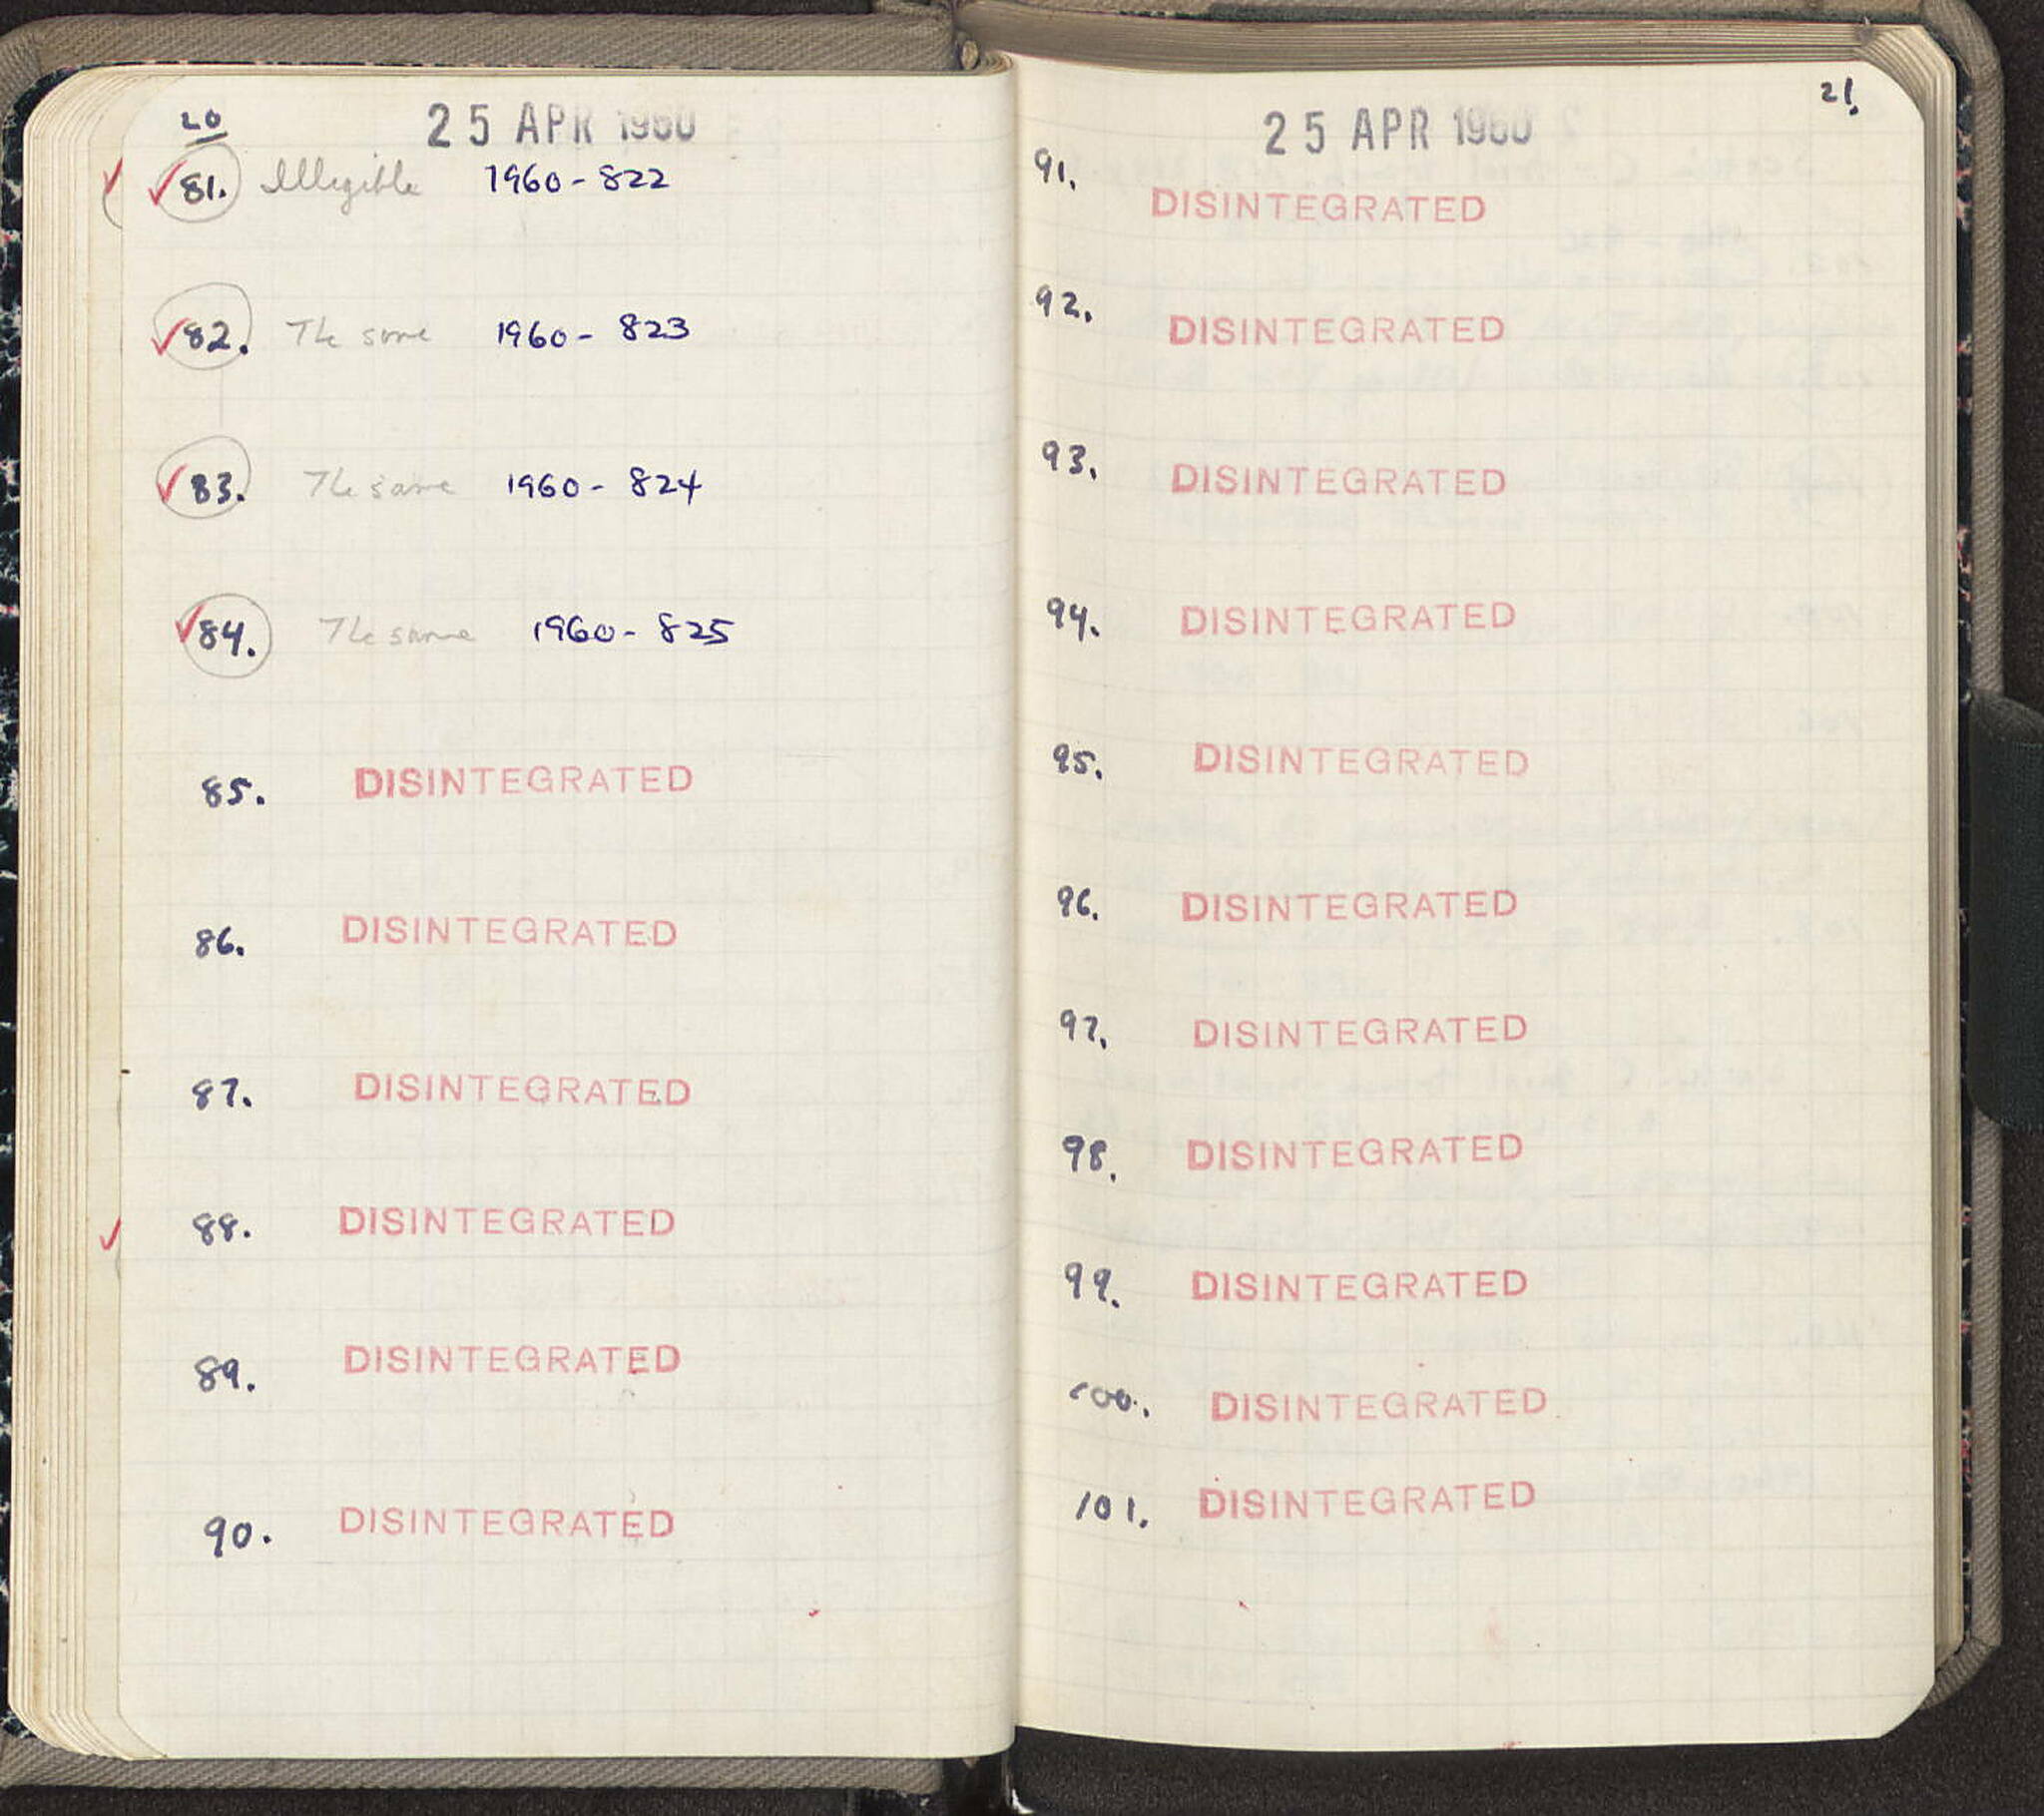 20
25 APR 1960
81. Illegible 1960-822
82. The same 1960-823
83. The same 1960-824
84. The same 1960-825
85. DISINTEGRATED
86. DISINTEGRATED
87. DISINTEGRATED
88. DISINTEGRATED
89. DISINTEGRATED
90. DISINTEGRATED
21.
25 APR 1960
91. DISINTEGRATED
92. DISINTEGRATED
93. DISINTEGRATED
94. DISINTEGRATED
95. DISINTEGRATED
96. DISINTEGRATED
97. DISINTEGRATED
98. DISINTEGRATED
99. DISINTEGRATED
100. DISINTEGRATED
101. DISINTEGRATED